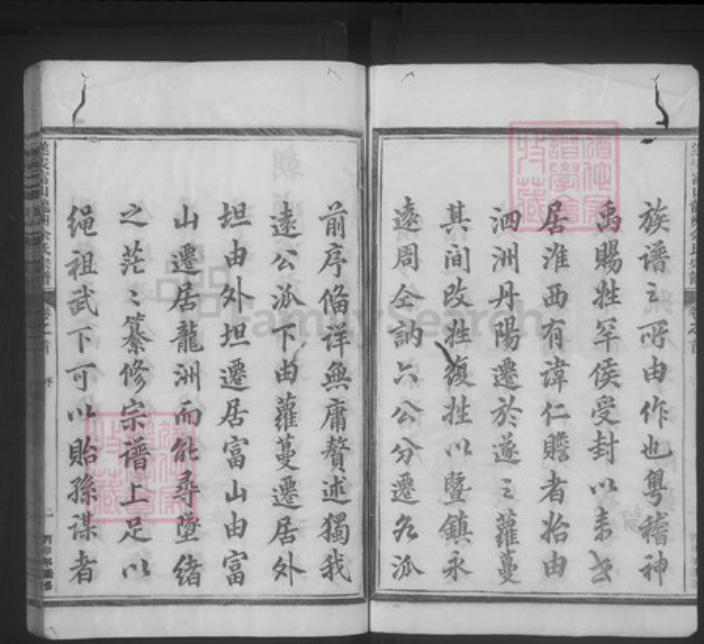 族谱之所由作也粤稽神
禹賜姓罕侯受封以来世
居淮西有諱仁贍者始由
泗洲丹陽遷於遂之蘿蔓
其間改姓復姓以暨鎮永
遠周仝訥六公分遷各派
前序俻詳無庸贅述獨我
遠公派下由蘿蔓遷居外
坦由外坦遷居富山由富
山遷居龍洲而能尋墜緒
之茫〻纂修宗谱上足以
绳祖武下可以貽孫谋者
余氏宗譜
卷之首
序
二
FamilySearch